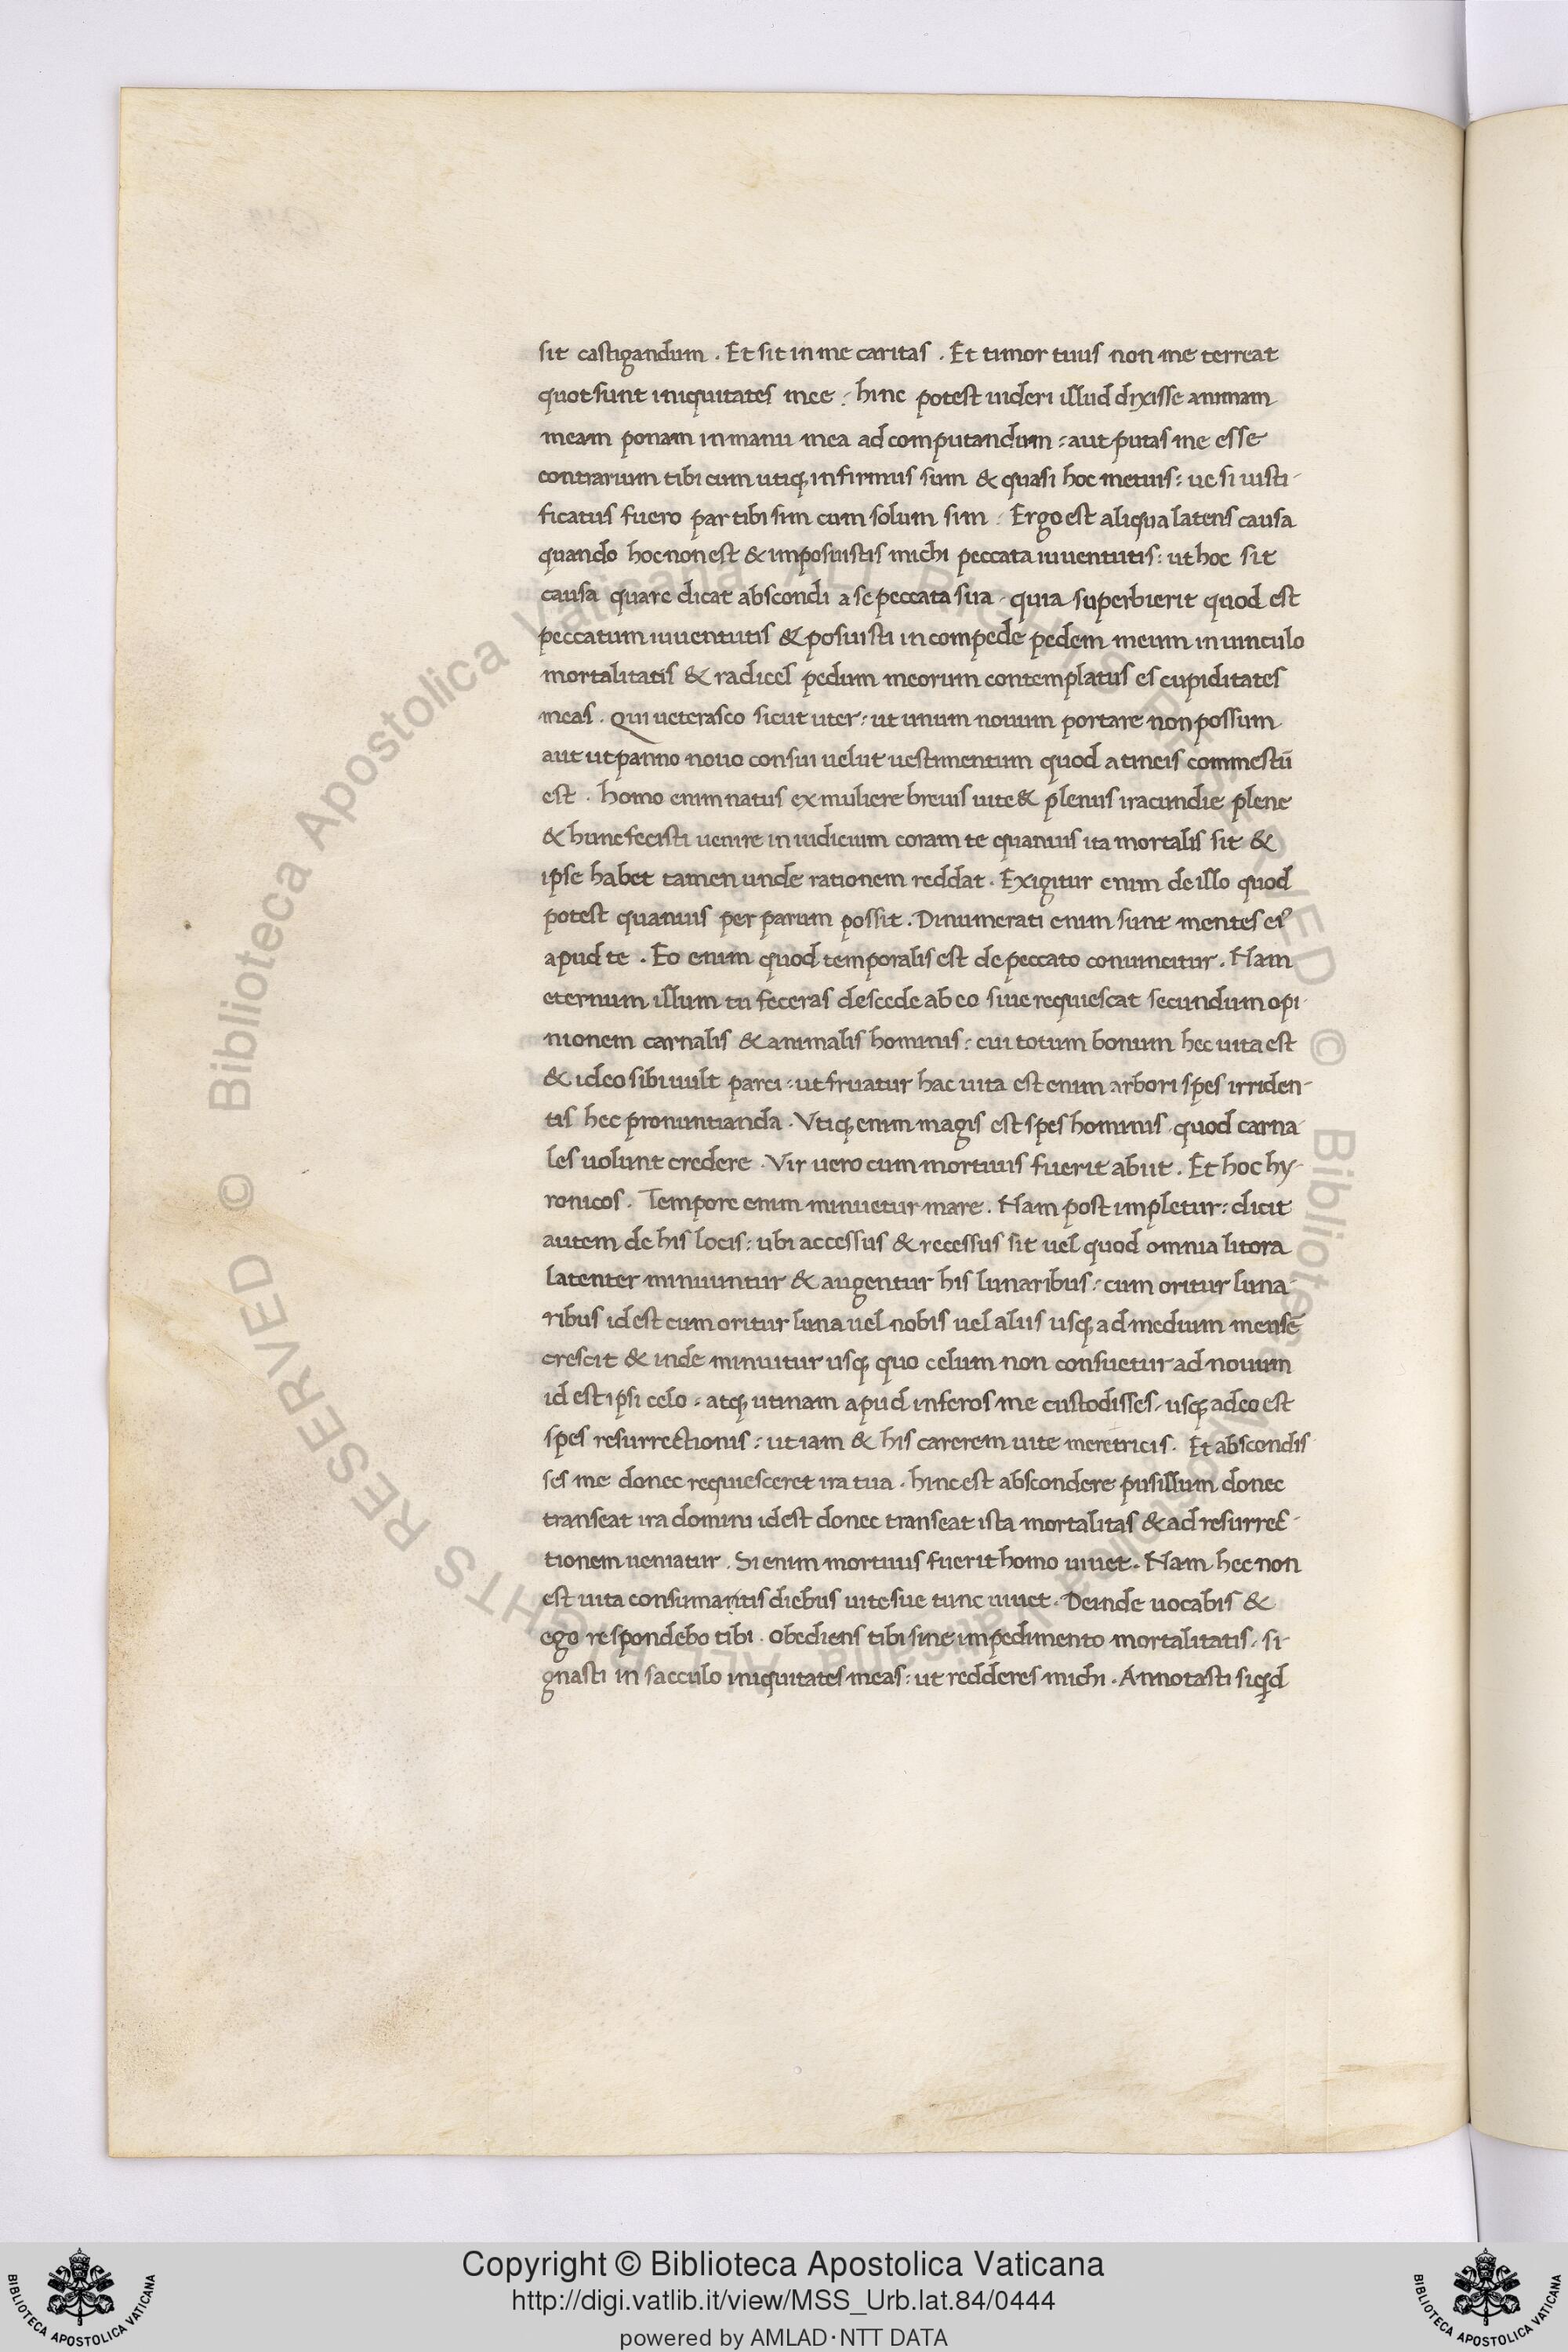 sit castigandum . Et sit in me caritas . Et timor tuus non me terreat
quot sunt iniquitates mee : hinc potest uideri illud dixisse animam
meam ponam in manu mea ad computandum : aut putas me esse
contrarium tibi cum utiq; infirmus sum & quasi hoc metuis : ue si iusti-
ficatus fuero par tibi sim cum solum sim . Ergo est aliqua latens causa
quando hoc non est & imposuistis michi peccata iuuentutis : ut hoc sit
causa quare dicat abscondi a se peccata sua . quia superbierit quod est
peccatum iuuentutis & posuisti in compede pedem meum in uinculo
mortalitatis & radices pedum meorum contemplatus es cupiditates
meas . Qui ueterasco sicut uter : ut uinum nouum portare non possum
aut ut panno nouo consui uelut uestimentum quod a tineis commestū
est . homo enim natus ex muliere breuis uite & plenus iracundie plene
& hunc fecisti uenire in iudicium coram te quamuis ita mortalis sit &
ipse habet tamen unde rationem reddat . Exigitur enim de illo quod
potest quamuis per parum possit . Dinumerati enim sunt mentes ei᾿
apud te . Eo enim quod temporalis est de peccato conuincitur . Nam
eternum illum tu feceras descede ab eo siue requiescat secundum opi-
nionem carnalis & animalis hominis : cui totum bonum hec uita est
& ideo sibi uult parci : ut fruatur hac uita est enim arbori spes irriden-
tis hec pronuntianda . Vtiq; enim magis est spes hominis quod carna-
les uolunt credere . Vir uero cum mortuus fuerit abiit . Et hoc hy-
ronicos . Tempore enim minuetur mare . Nam post impletur : dicit
autem de his locis : ubi accessus & recessus sit uel quod omnia litora
latenter minuuntur & augentur his lunaribus : cum oritur luna-
ribus id est cum oritur luna uel nobis uel aliis usq; ad medium mensē
crescit & inde minuitur usq; quo celum non consuetur ad nouum
id est ipsi celo : atq; utinam apud inferos me custodisses . usq; adeo est
spes resurrectionis : ut iam & his carerem uite meretricis . Et abscondis
ses me donec requiesceret ira tua . hinc est abscondere pusillum donec
transeat ira domini id est donec transeat ista mortalitas & ad resurrec-
tionem ueniatur . Si enim mortuus fuerit homo uiuet . Nam hec non
est uita consumantis diebus uite sue tunc uiuet . Deinde uocabis &
ego respondebo tibi . Obediens tibi sine impedimento mortalitatis . si-
gnasti in sacculo iniquitates meas : ut redderes michi . Annotasti siqd
© Biblioteca Apostolica Vaticana ALL RIGHTS RESERVED © Biblioteca Apostolica Vaticana ALL RIGHTS RESERVED
Copyright © Biblioteca Apostolica Vaticana
http://digi.vatlib.it/view/MSS_Urb.lat.84/0444
powered by AMLAD·NTT DATA
BIBLIOTECA APOSTOLICA VATICANA
BIBLIOTECA APOSTOLICA VATICANA